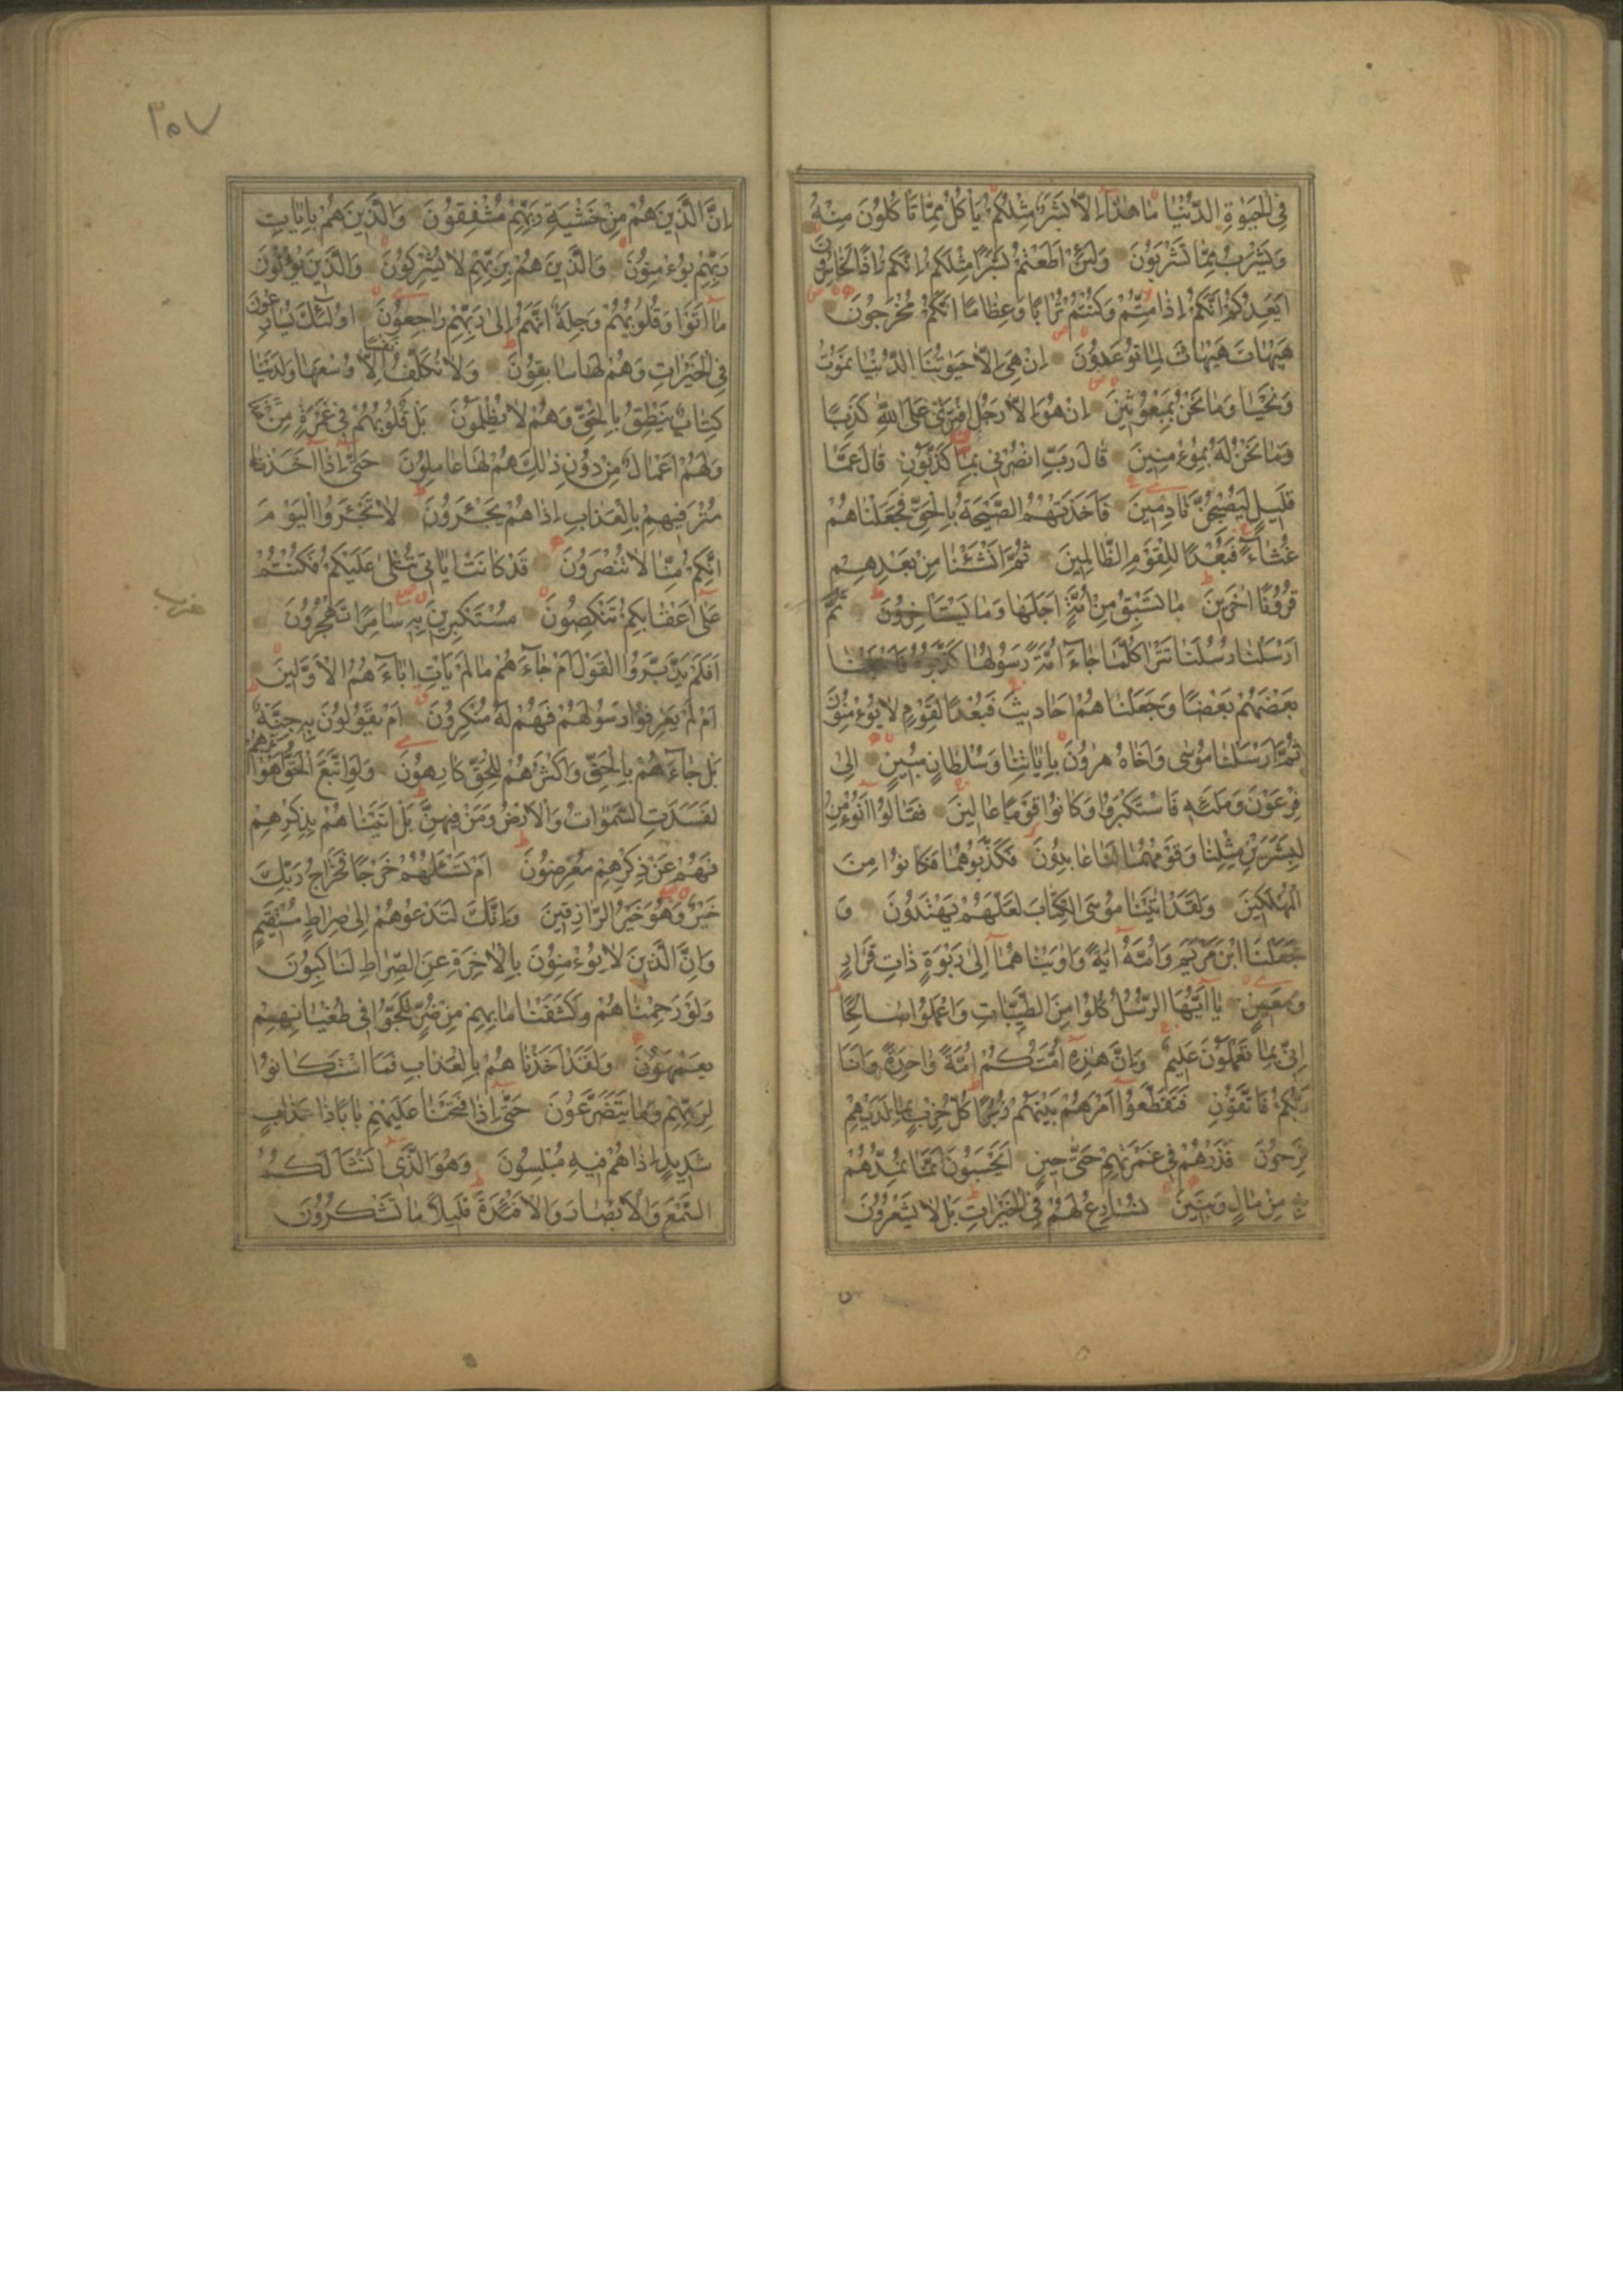 فِي الْحَيٰوةِ الدُّنْيَا مَا هٰذَا اِلَّا بَشَرٌ مِثْلُكُمْ يَأْكُلُ مِمَّا تَأْكُلُونَ مِنْهُ
وَيَشْرَبُ مِمَّا تَشْرَبُونَ وَلَئِنْ اَطَعْتُمْ بَشَرًا مِثْلَكُمْ اِنَّكُمْ اِذًا لَخَاسِرُونَ
اَيَعِدُكُمْ اَنَّكُمْ اِذَا مِتُّمْ وَكُنْتُمْ تُرَابًا وَعِظَامًا اَنَّكُمْ مُخْرَجُونَ
هَيْهَاتَ هَيْهَاتَ لِمَا تُوعَدُونَ اِنْ هِيَ اِلَّا حَيٰوتُنَا الدُّنْيَا نَمُوتُ
وَنَحْيَا وَمَا نَحْنُ بِمَبْعُوثِينَ اِنْ هُوَ اِلَّا رَجُلٌ افْتَرٰى عَلَى اللّٰهِ كَذِبًا
وَمَا نَحْنُ لَهُ بِمُؤْمِنِينَ قَالَ رَبِّ انْصُرْنِي بِمَا كَذَّبُونِ قَالَ عَمَّا
قَلِيلٍ لَيُصْبِحُنَّ نَادِمِينَ فَاَخَذَتْهُمُ الصَّيْحَةُ بِالْحَقِّ فَجَعَلْنَاهُمْ
غُثَاءً فَبُعْدًا لِلْقَوْمِ الظَّالِمِينَ ثُمَّ اَنْشَئْنَا مِنْ بَعْدِهِمْ
قُرُونًا اٰخَرِينَ مَا تَسْبِقُ مِنْ اُمَّةٍ اَجَلَهَا وَمَا يَسْتَاْخِرُونَ ثُمَّ
اَرْسَلْنَا رُسُلَنَا تَتْرَا كُلَّمَا جَاءَ اُمَّةً رَسُولُهَا كَذَّبُوهُ فَاَتْبَعْنَا
بَعْضَهُمْ بَعْضًا وَجَعَلْنَاهُمْ اَحَادِيثَ فَبُعْدًا لِقَوْمٍ لَا يُؤْمِنُونَ
ثُمَّ اَرْسَلْنَا مُوسٰى وَاَخَاهُ هٰرُونَ بِاٰيَاتِنَا وَسُلْطَانٍ مُبِينٍ اِلٰى
فِرْعَوْنَ وَمَلَئِهِ فَاسْتَكْبَرُوا وَكَانُوا قَوْمًا عَالِينَ فَقَالُوا اَنُؤْمِنُ
لِبَشَرَيْنِ مِثْلِنَا وَقَوْمُهُمَا لَنَا عَابِدُونَ فَكَذَّبُوهُمَا فَكَانُوا مِنَ
الْمُهْلَكِينَ وَلَقَدْ اٰتَيْنَا مُوسَى الْكِتَابَ لَعَلَّهُمْ يَهْتَدُونَ وَ
جَعَلْنَا ابْنَ مَرْيَمَ وَاُمَّهُ اٰيَةً وَاٰوَيْنَاهُمَا اِلٰى رَبْوَةٍ ذَاتِ قَرَارٍ
وَمَعِينٍ يَا اَيُّهَا الرُّسُلُ كُلُوا مِنَ الطَّيِّبَاتِ وَاعْمَلُوا صَالِحًا
اِنِّي بِمَا تَعْمَلُونَ عَلِيمٌ وَاِنَّ هٰذِهِ اُمَّتُكُمْ اُمَّةً وَاحِدَةً وَاَنَا
رَبُّكُمْ فَاتَّقُونِ فَتَقَطَّعُوا اَمْرَهُمْ بَيْنَهُمْ زُبُرًا كُلُّ حِزْبٍ بِمَا لَدَيْهِمْ
فَرِحُونَ فَذَرْهُمْ فِي غَمْرَتِهِمْ حَتّٰى حِينٍ اَيَحْسَبُونَ اَنَّمَا نُمِدُّهُمْ
بِهِ مِنْ مَالٍ وَبَنِينَ نُسَارِعُ لَهُمْ فِي الْخَيْرَاتِ بَلْ لَا يَشْعُرُونَ
٣٠٧
اِنَّ الَّذِينَ هُمْ مِنْ خَشْيَةِ رَبِّهِمْ مُشْفِقُونَ وَالَّذِينَ هُمْ بِاٰيَاتِ
رَبِّهِمْ يُؤْمِنُونَ وَالَّذِينَ هُمْ بِرَبِّهِمْ لَا يُشْرِكُونَ وَالَّذِينَ يُؤْتُونَ
مَا اٰتَوْا وَقُلُوبُهُمْ وَجِلَةٌ اَنَّهُمْ اِلٰى رَبِّهِمْ رَاجِعُونَ اُولٰئِكَ يُسَارِعُونَ
فِي الْخَيْرَاتِ وَهُمْ لَهَا سَابِقُونَ وَلَا نُكَلِّفُ نَفْسًا اِلَّا وُسْعَهَا وَلَدَيْنَا
كِتَابٌ يَنْطِقُ بِالْحَقِّ وَهُمْ لَا يُظْلَمُونَ بَلْ قُلُوبُهُمْ فِي غَمْرَةٍ مِنْ هٰذَا
وَلَهُمْ اَعْمَالٌ مِنْ دُونِ ذٰلِكَ هُمْ لَهَا عَامِلُونَ حَتّٰى اِذَا اَخَذْنَا
مُتْرَفِيهِمْ بِالْعَذَابِ اِذَا هُمْ يَجْئَرُونَ لَا تَجْئَرُوا الْيَوْمَ
اِنَّكُمْ مِنَّا لَا تُنْصَرُونَ قَدْ كَانَتْ اٰيَاتِي تُتْلٰى عَلَيْكُمْ فَكُنْتُمْ
عَلٰى اَعْقَابِكُمْ تَنْكِصُونَ مُسْتَكْبِرِينَ بِهِ سَامِرًا تَهْجُرُونَ
حزب
اَفَلَمْ يَدَّبَّرُوا الْقَوْلَ اَمْ جَاءَهُمْ مَا لَمْ يَاْتِ اٰبَاءَهُمُ الْاَوَّلِينَ
اَمْ لَمْ يَعْرِفُوا رَسُولَهُمْ فَهُمْ لَهُ مُنْكِرُونَ اَمْ يَقُولُونَ بِهِ جِنَّةٌ
بَلْ جَاءَهُمْ بِالْحَقِّ وَاَكْثَرُهُمْ لِلْحَقِّ كَارِهُونَ وَلَوِ اتَّبَعَ الْحَقُّ اَهْوَاءَهُمْ
لَفَسَدَتِ السَّمٰوَاتُ وَالْاَرْضُ وَمَنْ فِيهِنَّ بَلْ اَتَيْنَاهُمْ بِذِكْرِهِمْ
فَهُمْ عَنْ ذِكْرِهِمْ مُعْرِضُونَ اَمْ تَسْئَلُهُمْ خَرْجًا فَخَرَاجُ رَبِّكَ
خَيْرٌ وَهُوَ خَيْرُ الرَّازِقِينَ وَاِنَّكَ لَتَدْعُوهُمْ اِلٰى صِرَاطٍ مُسْتَقِيمٍ
وَاِنَّ الَّذِينَ لَا يُؤْمِنُونَ بِالْاٰخِرَةِ عَنِ الصِّرَاطِ لَنَاكِبُونَ
وَلَوْ رَحِمْنَاهُمْ وَكَشَفْنَا مَا بِهِمْ مِنْ ضُرٍّ لَلَجُّوا فِي طُغْيَانِهِمْ
يَعْمَهُونَ وَلَقَدْ اَخَذْنَاهُمْ بِالْعَذَابِ فَمَا اسْتَكَانُوا
لِرَبِّهِمْ وَمَا يَتَضَرَّعُونَ حَتّٰى اِذَا فَتَحْنَا عَلَيْهِمْ بَابًا ذَا عَذَابٍ
شَدِيدٍ اِذَا هُمْ فِيهِ مُبْلِسُونَ وَهُوَ الَّذِي اَنْشَاَ لَكُمُ
السَّمْعَ وَالْاَبْصَارَ وَالْاَفْئِدَةَ قَلِيلًا مَا تَشْكُرُونَ